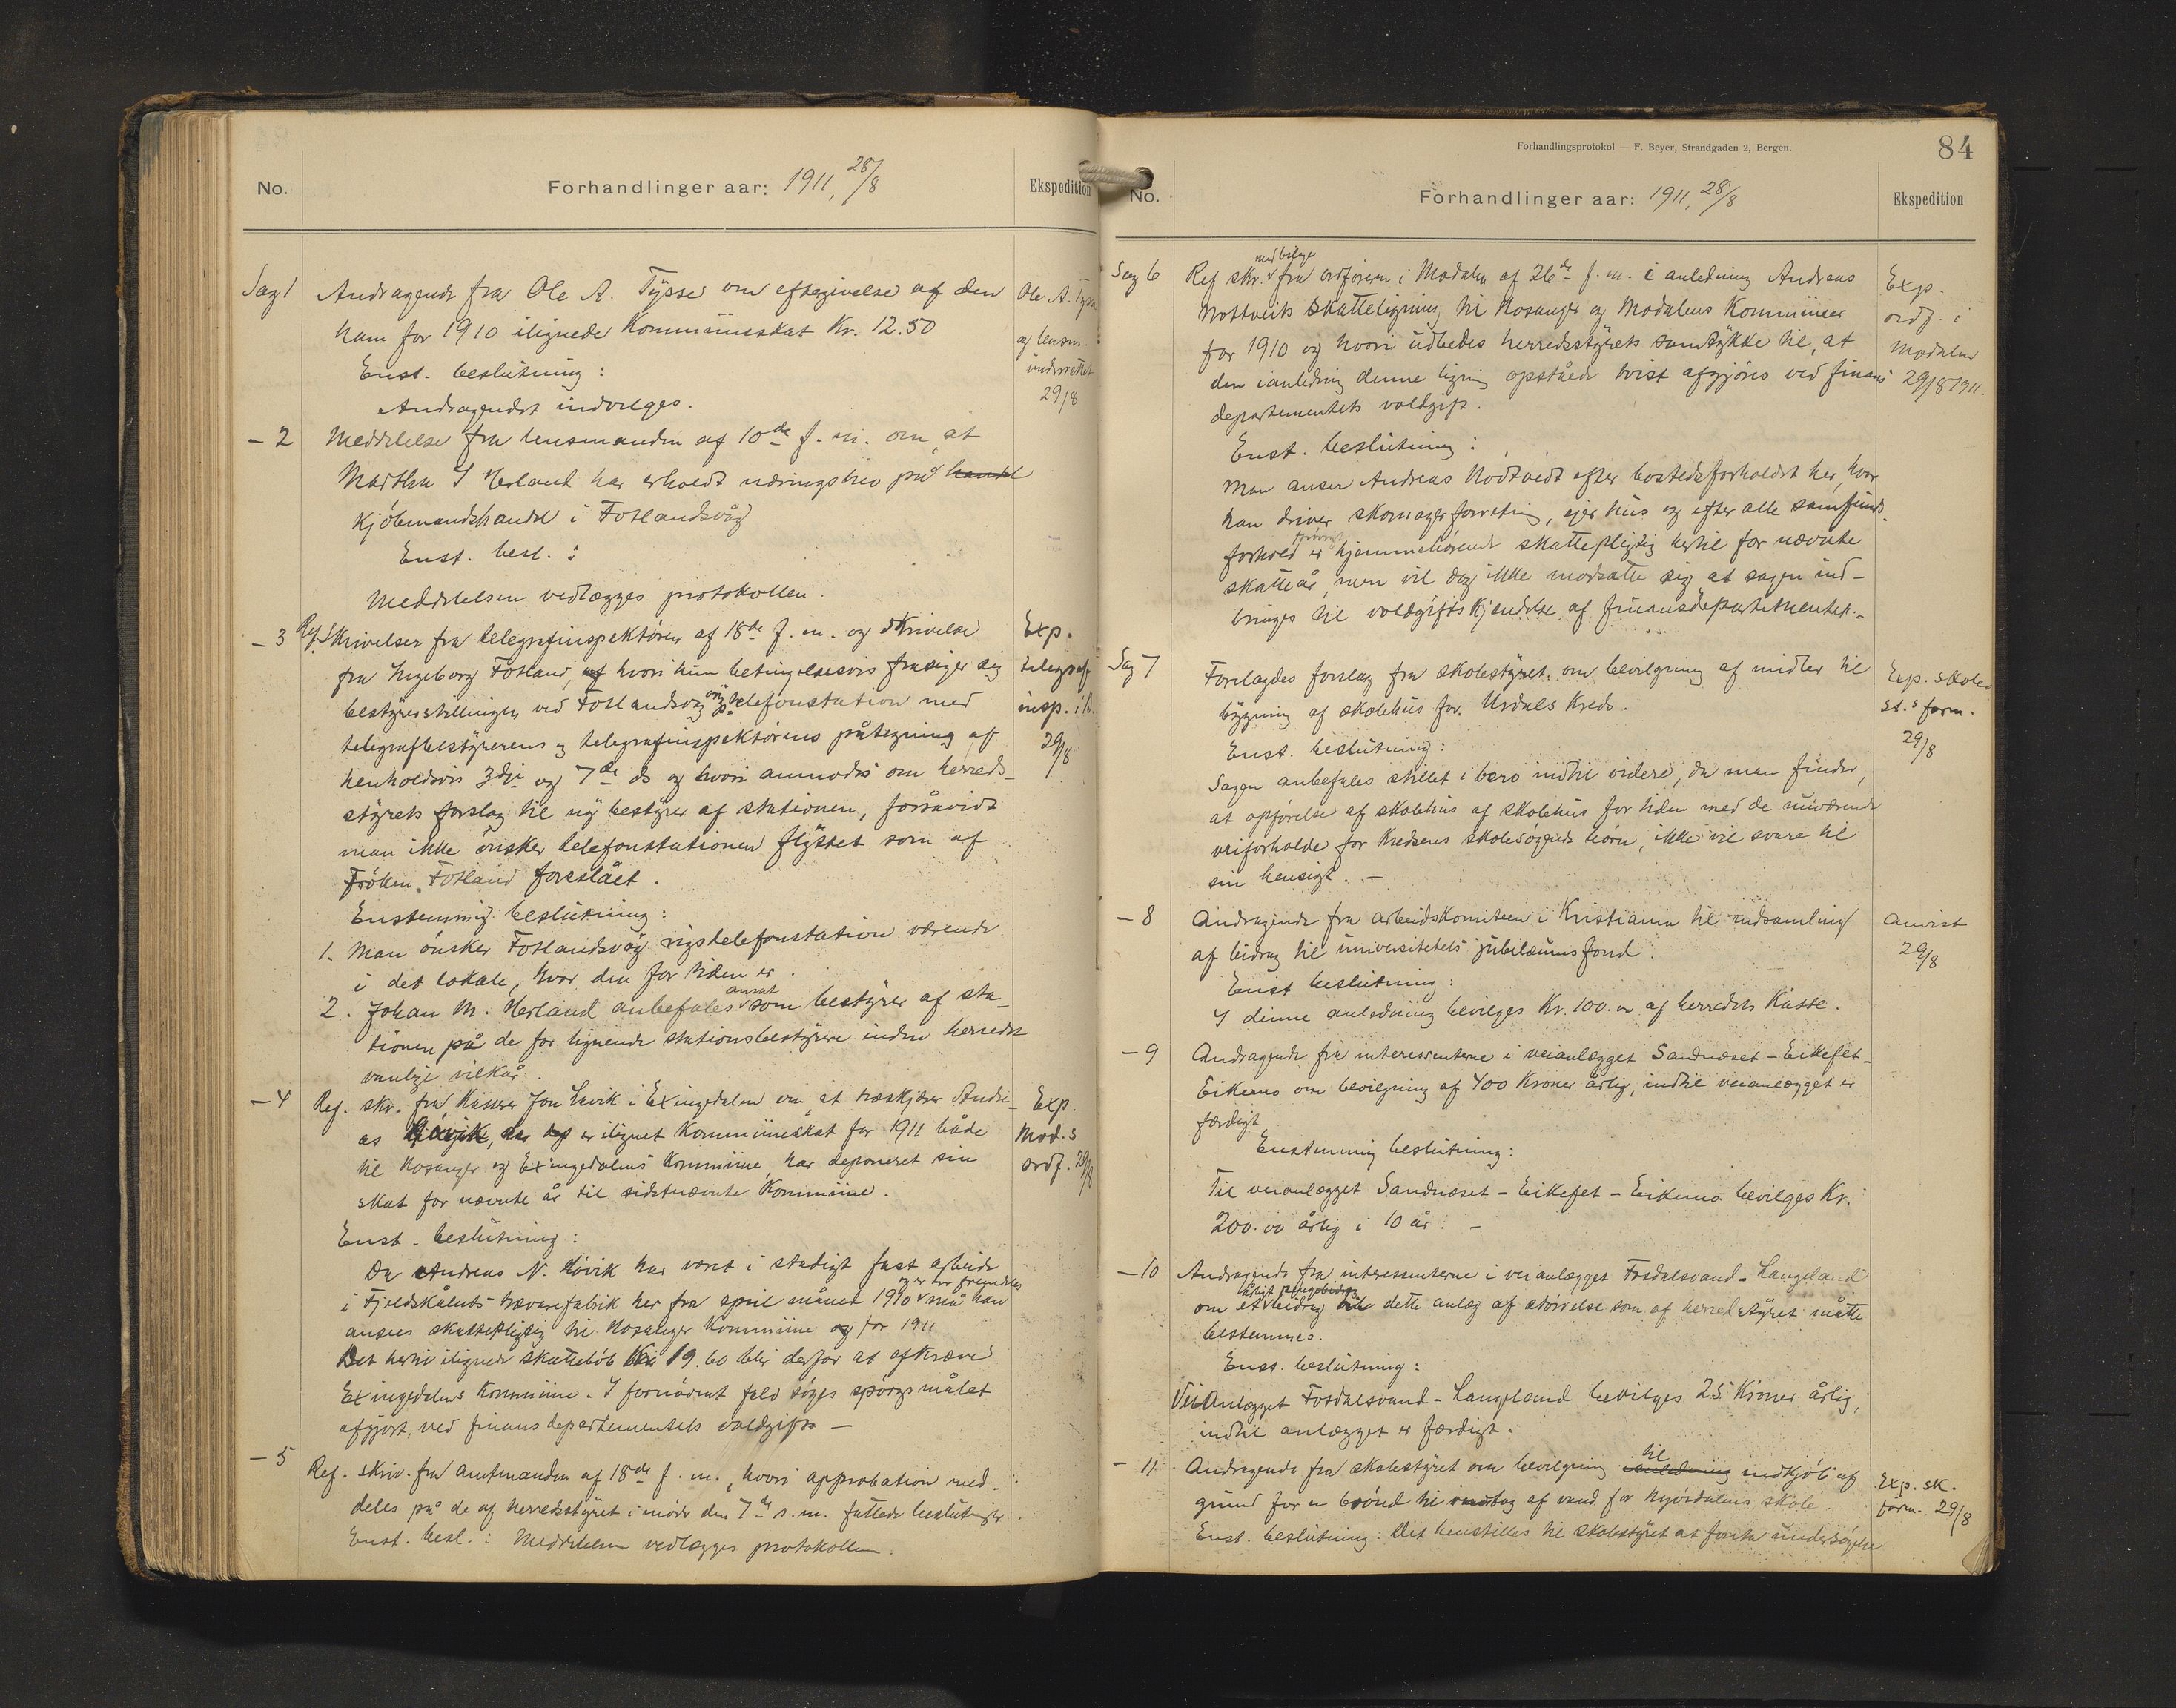 No.
Forhandlinger aar: 1911, 28/8
Ekspedition
Sag 1 Andragende fra Ole A. Tysse om eftergivelse af den
ham for 1910 ilignede Kommuneskat Kr. 12.50
Enst. beslutning:
Andragendet indvilges.
Ole A. Tysse
og lensm.
underrettet
29/8
- 2 Meddelelse fra lensmanden af 10de f. m. om, at
Martha I Herland har erholdt næringsbrev på handel
Kjöbmandshandel i Fotlandsvåg
Enst. besl.:
Meddelelsen vedlægges protokollen.
- 3 Ref. Skrivelser fra telegrafinspektören af 18de f. m. og skrivelse
fra Ingeborg Fotland, af hvori hun betingelsesvis frasiger sig
bestyrerstillingen ved Fotlandsvåg rigstelefonstation med
telegrafbestyrerens og telegrafinspektörens påtegning af
henholdsvis 3dje og 7de ds og hvori anmodes om herreds-
styrets forslag til ny bestyrer af stationen, forsåvidt
man ikke önsker telefonstationen flyttet som af
Fröken Fotland foreslået.
Enstemmig beslutning:
1. Man önsker Fotlandsvåg rigstelefonstation værende
i det lokale, hvor den for tiden er.
2. Johan M. Herland anbefales ansat som bestyrer af sta-
tionen på de for lignende stationsbestyrere inden herredet
vanlige vilkår.
Exp.
telegraf
insp. i B.
29/8
- 4 Ref. skr. fra Kasserer Jon Eavik i Exingedalen om, at træskjærer Andre-
as Hövik, der er ilignet Kommuneskat for 1911 både
til Hosanger og Exingedalens Kommune, har deponeret sin
skat for nævnte år til sidstnævnte Kommune.
Enst. beslutning:
Da Andreas N. Hövik har været i stadigt fast arbeide
i Fjeldskålnes trævarefabrik her fra april måned 1910 og er her fremdeles må han
ansees skattepligtig til Hosanger Kommune og for 1911
Det hertil ilignede skattebelöb Kr. 19.60 blir derfor at afkræve
Exingedalens Kommune. I fornödent fald söges spörgsmålet
afgjort ved finansdepartementets voldgift. —
Exp.
Mod.s
ordf. 29/8
- 5 Ref. skriv. fra Amtmanden af 18de f. m., hvori approbation med-
deles på de af herredsstyret i möde den 7de s. m. fattede beslutninger.
Enst. besl.: Meddelelsen vedlægges protokollen.
Forhandlingsprotokol — F. Beyer, Strandgaden 2, Bergen.
84
No.
Forhandlinger aar: 1911, 28/8
Ekspedition
Sag 6 Ref skr. med bilage fra ordföreren i Modalen af 26de f. m. i anledning Andreas
Nottveits skatteligning til Hosanger og Modalens Kommuner
for 1910 og hvori udbedes herredsstyrets samtykke til, at
den i anledning denne ligning opståede tvist afgjöres ved finans
departementets voldgift.
Enst. beslutning:
Man anser Andreas Nodtvedt efter bostedsforholdet her, hvor
han driver skomagerforretning, ejer hus og efter alle samfunds-
forhold forövrigt er hjemmehörende skattepligtig hertil for nævnte
skatteår, men vil dog ikke modsætte sig at sagen ind-
bringes til voldgifts Kjendelse af finansdepartementet.-
Exp.
ordf. i
Modalen
29/8 1911.
Sag 7 Forelagdes forslag fra skolestyret om bevilgning af midler til
bygning af skolehus for Urdals Kreds.
Enst. beslutning:
Sagen anbefales stillet i bero indtil videre, da man finder,
at opförelse af skolehus af skolehus for tiden med de nuværende
veiforholde for Kredsens skolesögende börn, ikke vil svare til
sin hensigt. —
Exp. skole-
st.s form.
29/8
- 8 Andragende fra arbeidskomiteen i Kristiania til indsamling
af bidrag til universitetets jubilæumsfond.
Enst beslutning:
I denne anledning bevilges Kr. 100.00 af herredets Kasse.
Anvist
29/8
- 9 Andragende fra interessenterne i veianlægget Sandnæset - Eikefet -
Eikemo om bevilgning af 400 Kroner årlig, indtil veianlægget er
færdigt
Enstemmig beslutning:
Til veianlægget Sandnæset - Eikefet - Eikemo bevilges Kr.
200.00 årlig i 10 år. —
- 10 Andragende fra interessenterne i veianlægget Fosdalsvand - Langeland
om et årligt pengebidrag bidrag til dette anlæg af störrelse som af herredsstyret måtte
bestemmes.
Enst. beslutning:
Veianlægget Fosdalsvand - Langeland bevilges 25 Kroner årlig,
indtil anlægget er færdigt.
- 11 Andragende fra skolestyret om bevilgning anledning til indkjöb af
grund for en brönd til indtag af vand for Myördalens skole.
Enst. beslutning: Det henstilles til skolestyret at foreta undersögelse
Exp. sk.
form. 29/8